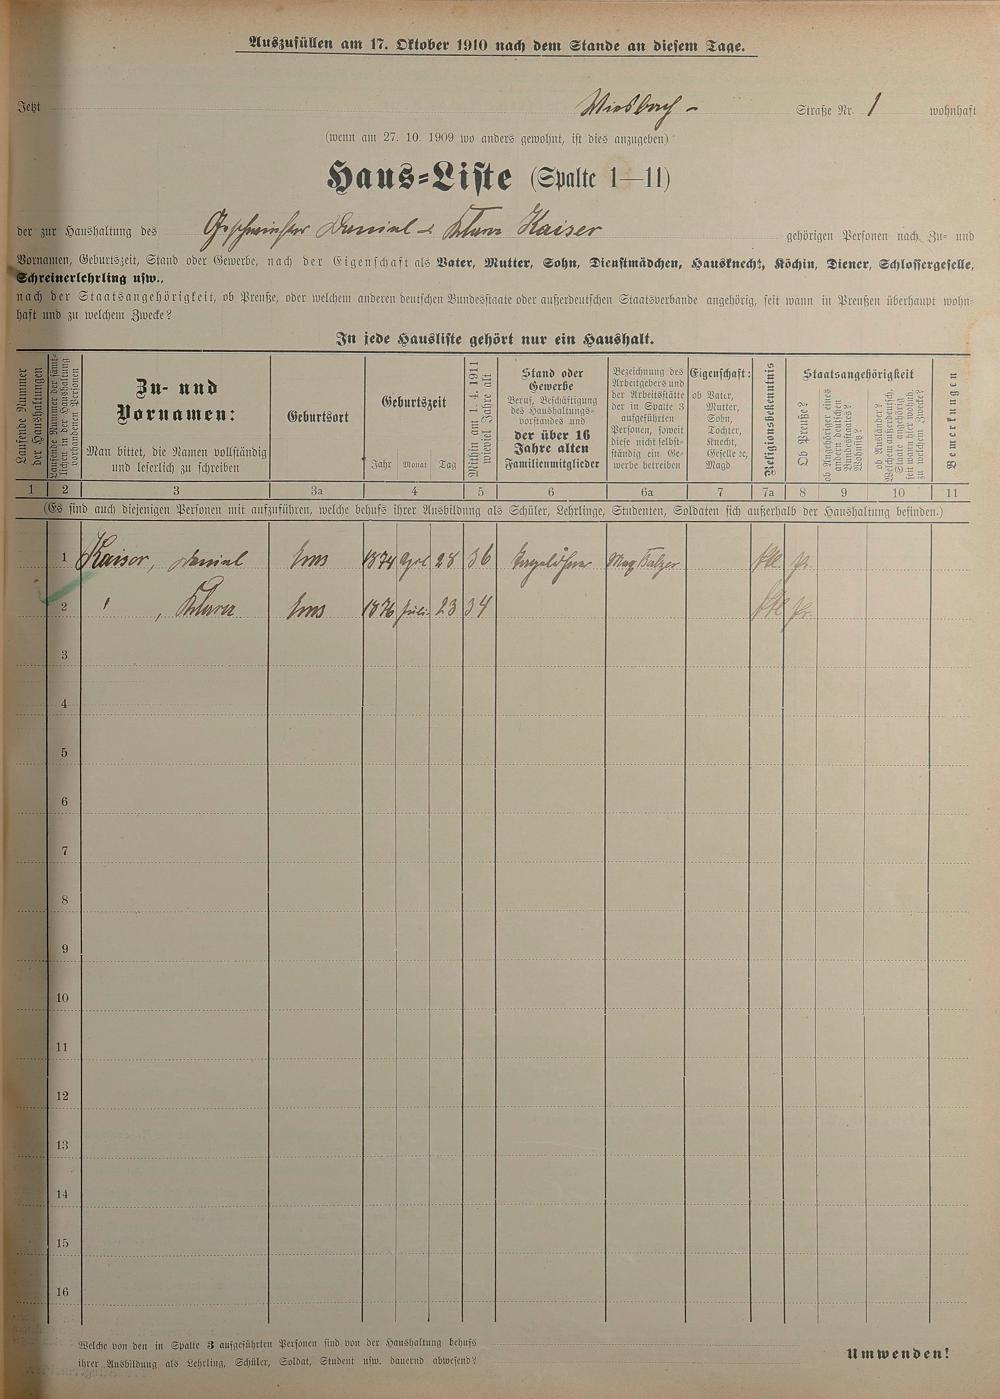 Auszufüllen am 17. Oktober 1910 nach dem Stande an diesem Tage.
Jetzt Wiesbach- Straße Nr. 1 wohnhaft
(wenn am 27. 10. 1909 wo anders gewohnt, ist dies anzugeben)
Haus-Liste (Spalte 1—11)
der zur Haushaltung des Geschwister Daniel & Klara Kaiser gehörigen Personen nach Zu- und
Vornamen, Geburtszeit, Stand oder Gewerbe, nach der Eigenschaft als Vater, Mutter, Sohn, Dienstmädchen, Hausknecht, Köchin, Diener, Schlossergeselle,
Schreinerlehrling usw.,
nach der Staatsangehörigkeit, ob Preuße, oder welchem anderen deutschen Bundesstaate oder außerdeutschen Staatsverbande angehörig, seit wann in Preußen überhaupt wohn-
haft und zu welchem Zwecke?
In jede Hausliste gehört nur ein Haushalt.
Laufende Nummer
der Haushaltungen
Laufende Nummer der sämt-
lichen in der Haushaltung
vorhandenen Personen
Zu- und
Vornamen:
Man bittet, die Namen vollständig
und leserlich zu schreiben
Geburtsort
Geburtszeit
Jahr Monat Tag
Mithin am 1. 4. 1911
wieviel Jahre alt
Stand oder
Gewerbe
Beruf, Beschäftigung
des Haushaltungs-
vorstandes und
der über 16
Jahre alten
Familienmitglieder
Bezeichnung des
Arbeitgebers und
der Arbeitsstätte
der in Spalte 3
aufgeführten
Personen, soweit
diese nicht selbst-
ständig ein Ge-
werbe betreiben
Eigenschaft:
ob Vater,
Mutter,
Sohn,
Tochter,
Knecht,
Geselle ec,
Magd
Religionsbekenntnis
Staatsangehörigkeit
Ob Preuße?
ob Angehöriger eines
andern deutschen
Bundesstaates?
Wohnsitz?
ob Ausländer?
Welchem außerdeutsch.
Staate angehörig
seit wann hier wohnh.
zu welchem Zwecke?
Bemerkungen
1 2 3 3a 4 5 6 6a 7 7a 8 9 10 11
(Es sind auch diejenigen Personen mit aufzuführen, welche behufs ihrer Ausbildung als Schüler, Lehrlinge, Studenten, Soldaten sich außerhalb der Haushaltung befinden.)
1 Kaiser, Daniel Ems 1874 April 28 36 Tagelöhner Balzer Ktl. Pr.
2 " , Klara Ems 1876 Juli 23 34 Ktl Pr.
3
4
5
6
7
8
9
10
11
12
13
14
15
16
Welche von den in Spalte 3 aufgeführten Personen sind von der Haushaltung behufs
ihrer Ausbildung als Lehrling, Schüler, Soldat, Student usw. dauernd abwesend?
Umwenden!